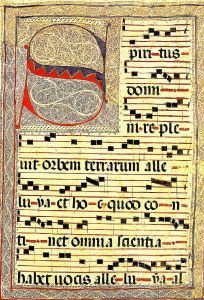 Spiritus
domi
ni reple
uit orbem terrarum alle
lu-ya et ho-c quod co-n
ti-net omnia scientia
habet uocis alle-lu-ya al